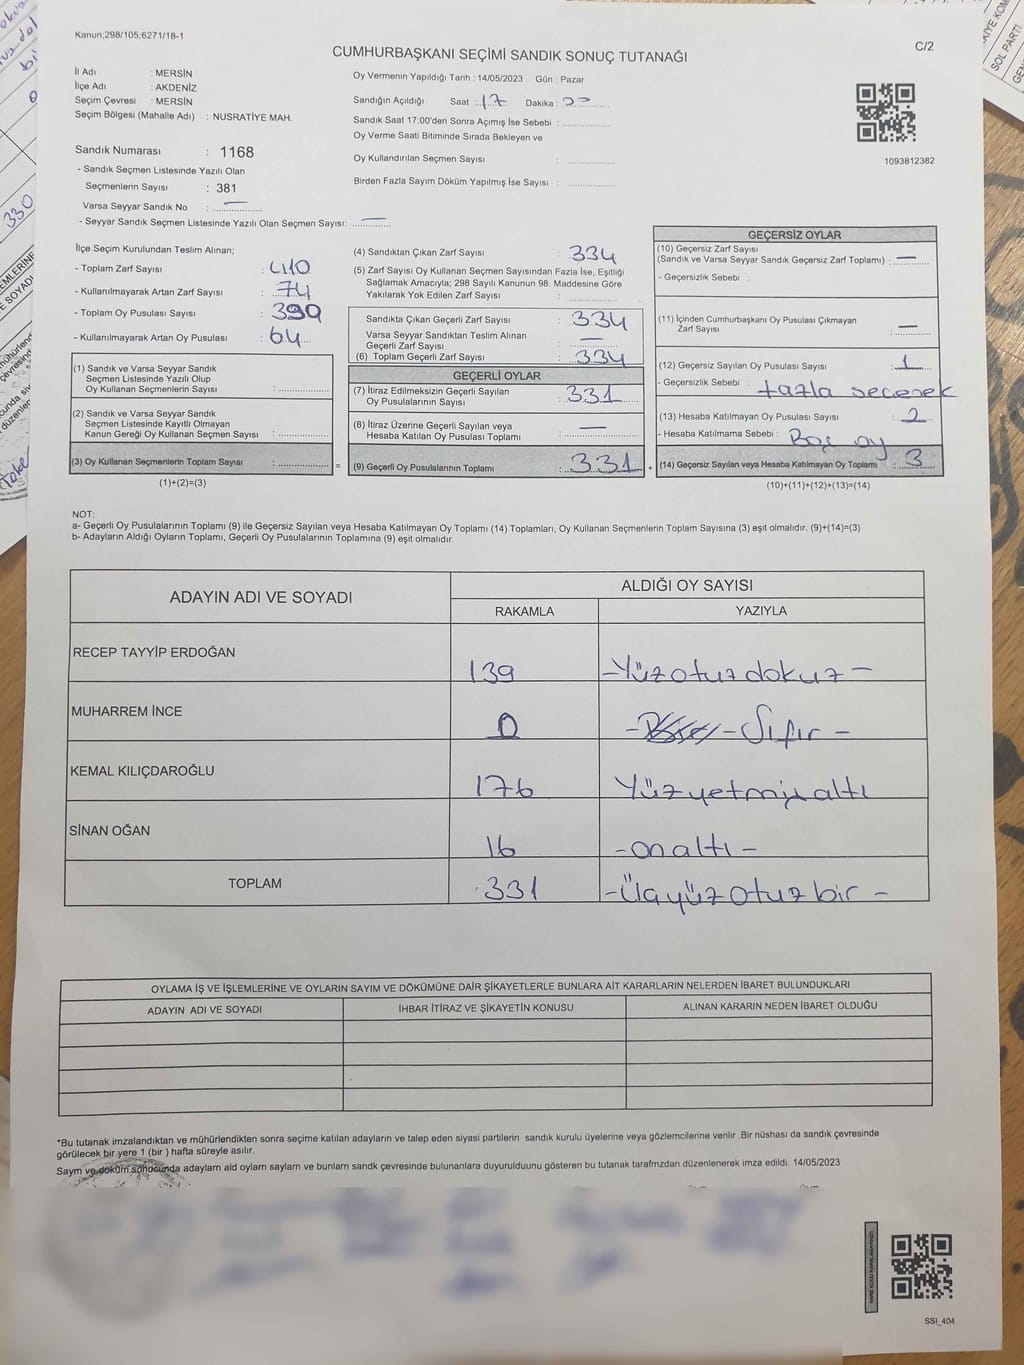 Kanun;298/105;6271/18-1
C/2
CUMHURBAŞKANI SEÇİMİ SANDIK SONUÇ TUTANAĞI
İl Adı : MERSİN
İlçe Adı : AKDENİZ
Seçim Çevresi : MERSİN
Seçim Bölgesi (Mahalle Adı) : NUSRATİYE MAH.
Sandık Numarası : 1168
- Sandık Seçmen Listesinde Yazılı Olan
Seçmenlerin Sayısı : 381
Varsa Seyyar Sandık No : —
- Seyyar Sandık Seçmen Listesinde Yazılı Olan Seçmen Sayısı: —
Oy Vermenin Yapıldığı Tarih : 14/05/2023 Gün : Pazar
Sandığın Açıldığı Saat : 17 Dakika :
Sandık Saat 17:00'den Sonra Açımış İse Sebebi :
Oy Verme Saati Bitiminde Sırada Bekleyen ve
Oy Kullandırılan Seçmen Sayısı :
Birden Fazla Sayım Döküm Yapılmış İse Sayısı :
1093812382
İlçe Seçim Kurulundan Teslim Alınan;
- Toplam Zarf Sayısı : 410
- Kullanılmayarak Artan Zarf Sayısı : 74
- Toplam Oy Pusulası Sayısı : 399
- Kullanılmayarak Artan Oy Pusulası : 64
(1) Sandık ve Varsa Seyyar Sandık
Seçmen Listesinde Yazılı Olup
Oy Kullanan Seçmenlerin Sayısı :
(2) Sandık ve Varsa Seyyar Sandık
Seçmen Listesinde Kayıtlı Olmayan
Kanun Gereği Oy Kullanan Seçmen Sayısı :
(3) Oy Kullanan Seçmenlerin Toplam Sayısı : =
(1)+(2)=(3)
(4) Sandıktan Çıkan Zarf Sayısı : 334
(5) Zarf Sayısı Oy Kullanan Seçmen Sayısından Fazla İse, Eşitliği
Sağlamak Amacıyla; 298 Sayılı Kanunun 98. Maddesine Göre
Yakılarak Yok Edilen Zarf Sayısı :
Sandıkta Çıkan Geçerli Zarf Sayısı : 334
Varsa Seyyar Sandıktan Teslim Alınan
Geçerli Zarf Sayısı : —
(6) Toplam Geçerli Zarf Sayısı : 334
GEÇERLİ OYLAR
(7) İtiraz Edilmeksizin Geçerli Sayılan
Oy Pusulalarının Sayısı : 331
(8) İtiraz Üzerine Geçerli Sayılan veya
Hesaba Katılan Oy Pusulası Toplamı : —
(9) Geçerli Oy Pusulalarının Toplamı : 331 +
GEÇERSİZ OYLAR
(10) Geçersiz Zarf Sayısı
(Sandık ve Varsa Seyyar Sandık Geçersiz Zarf Toplamı) : —
- Geçersizlik Sebebi :
(11) İçinden Cumhurbaşkanı Oy Pusulası Çıkmayan
Zarf Sayısı : —
(12) Geçersiz Sayılan Oy Pusulası Sayısı : 1
- Geçersizlik Sebebi : fazla seçenek
(13) Hesaba Katılmayan Oy Pusulası Sayısı : 2
- Hesaba Katılmama Sebebi : Boş oy
(14) Geçersiz Sayılan veya Hesaba Katılmayan Oy Toplamı : 3
(10)+(11)+(12)+(13)=(14)
NOT:
a- Geçerli Oy Pusulalarının Toplamı (9) ile Geçersiz Sayılan veya Hesaba Katılmayan Oy Toplamı (14) Toplamları, Oy Kullanan Seçmenlerin Toplam Sayısına (3) eşit olmalıdır. (9)+(14)=(3)
b- Adayların Aldığı Oyların Toplamı, Geçerli Oy Pusulalarının Toplamına (9) eşit olmalıdır.
ADAYIN ADI VE SOYADI ALDIĞI OY SAYISI
RAKAMLA YAZIYLA
RECEP TAYYİP ERDOĞAN 139 -Yüzotuzdokuz-
MUHARREM İNCE 0 - -Sıfır-
KEMAL KILIÇDAROĞLU 176 Yüzyetmişaltı
SİNAN OĞAN 16 -onaltı-
TOPLAM 331 -Üçyüzotuzbir-
OYLAMA İŞ VE İŞLEMLERİNE VE OYLARIN SAYIM VE DÖKÜMÜNE DAİR ŞİKAYETLERLE BUNLARA AİT KARARLARIN NELERDEN İBARET BULUNDUKLARI
ADAYIN ADI VE SOYADI İHBAR İTİRAZ VE ŞİKAYETİN KONUSU ALINAN KARARIN NEDEN İBARET OLDUĞU
*Bu tutanak imzalandıktan ve mühürlendikten sonra seçime katılan adayların ve talep eden siyasi partilerin sandık kurulu üyelerine veya gözlemcilerine verilir .Bir nüshası da sandık çevresinde
görülecek bir yere 1 (bir ) hafta süreyle asılır.
Sayım ve döküm sonocunda adayların ald oyların sayların ve bunların sandk çevresinde bulunanlara duyurulduunu gösteren bu tutanak tarafmzdan düzenlenerek imza edildi. 14/05/2023
SSI_404